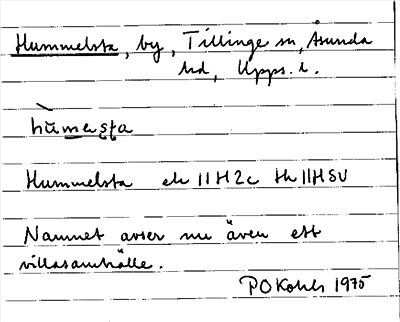 Hummelsta, by, Tillinge sn, Åsunda
hd, Upps. l.
hùmesta
Hummelsta ek 11H2c tk 11HSV
Namnet avser nu även ett
villasamhälle.
PO Kohls 1975